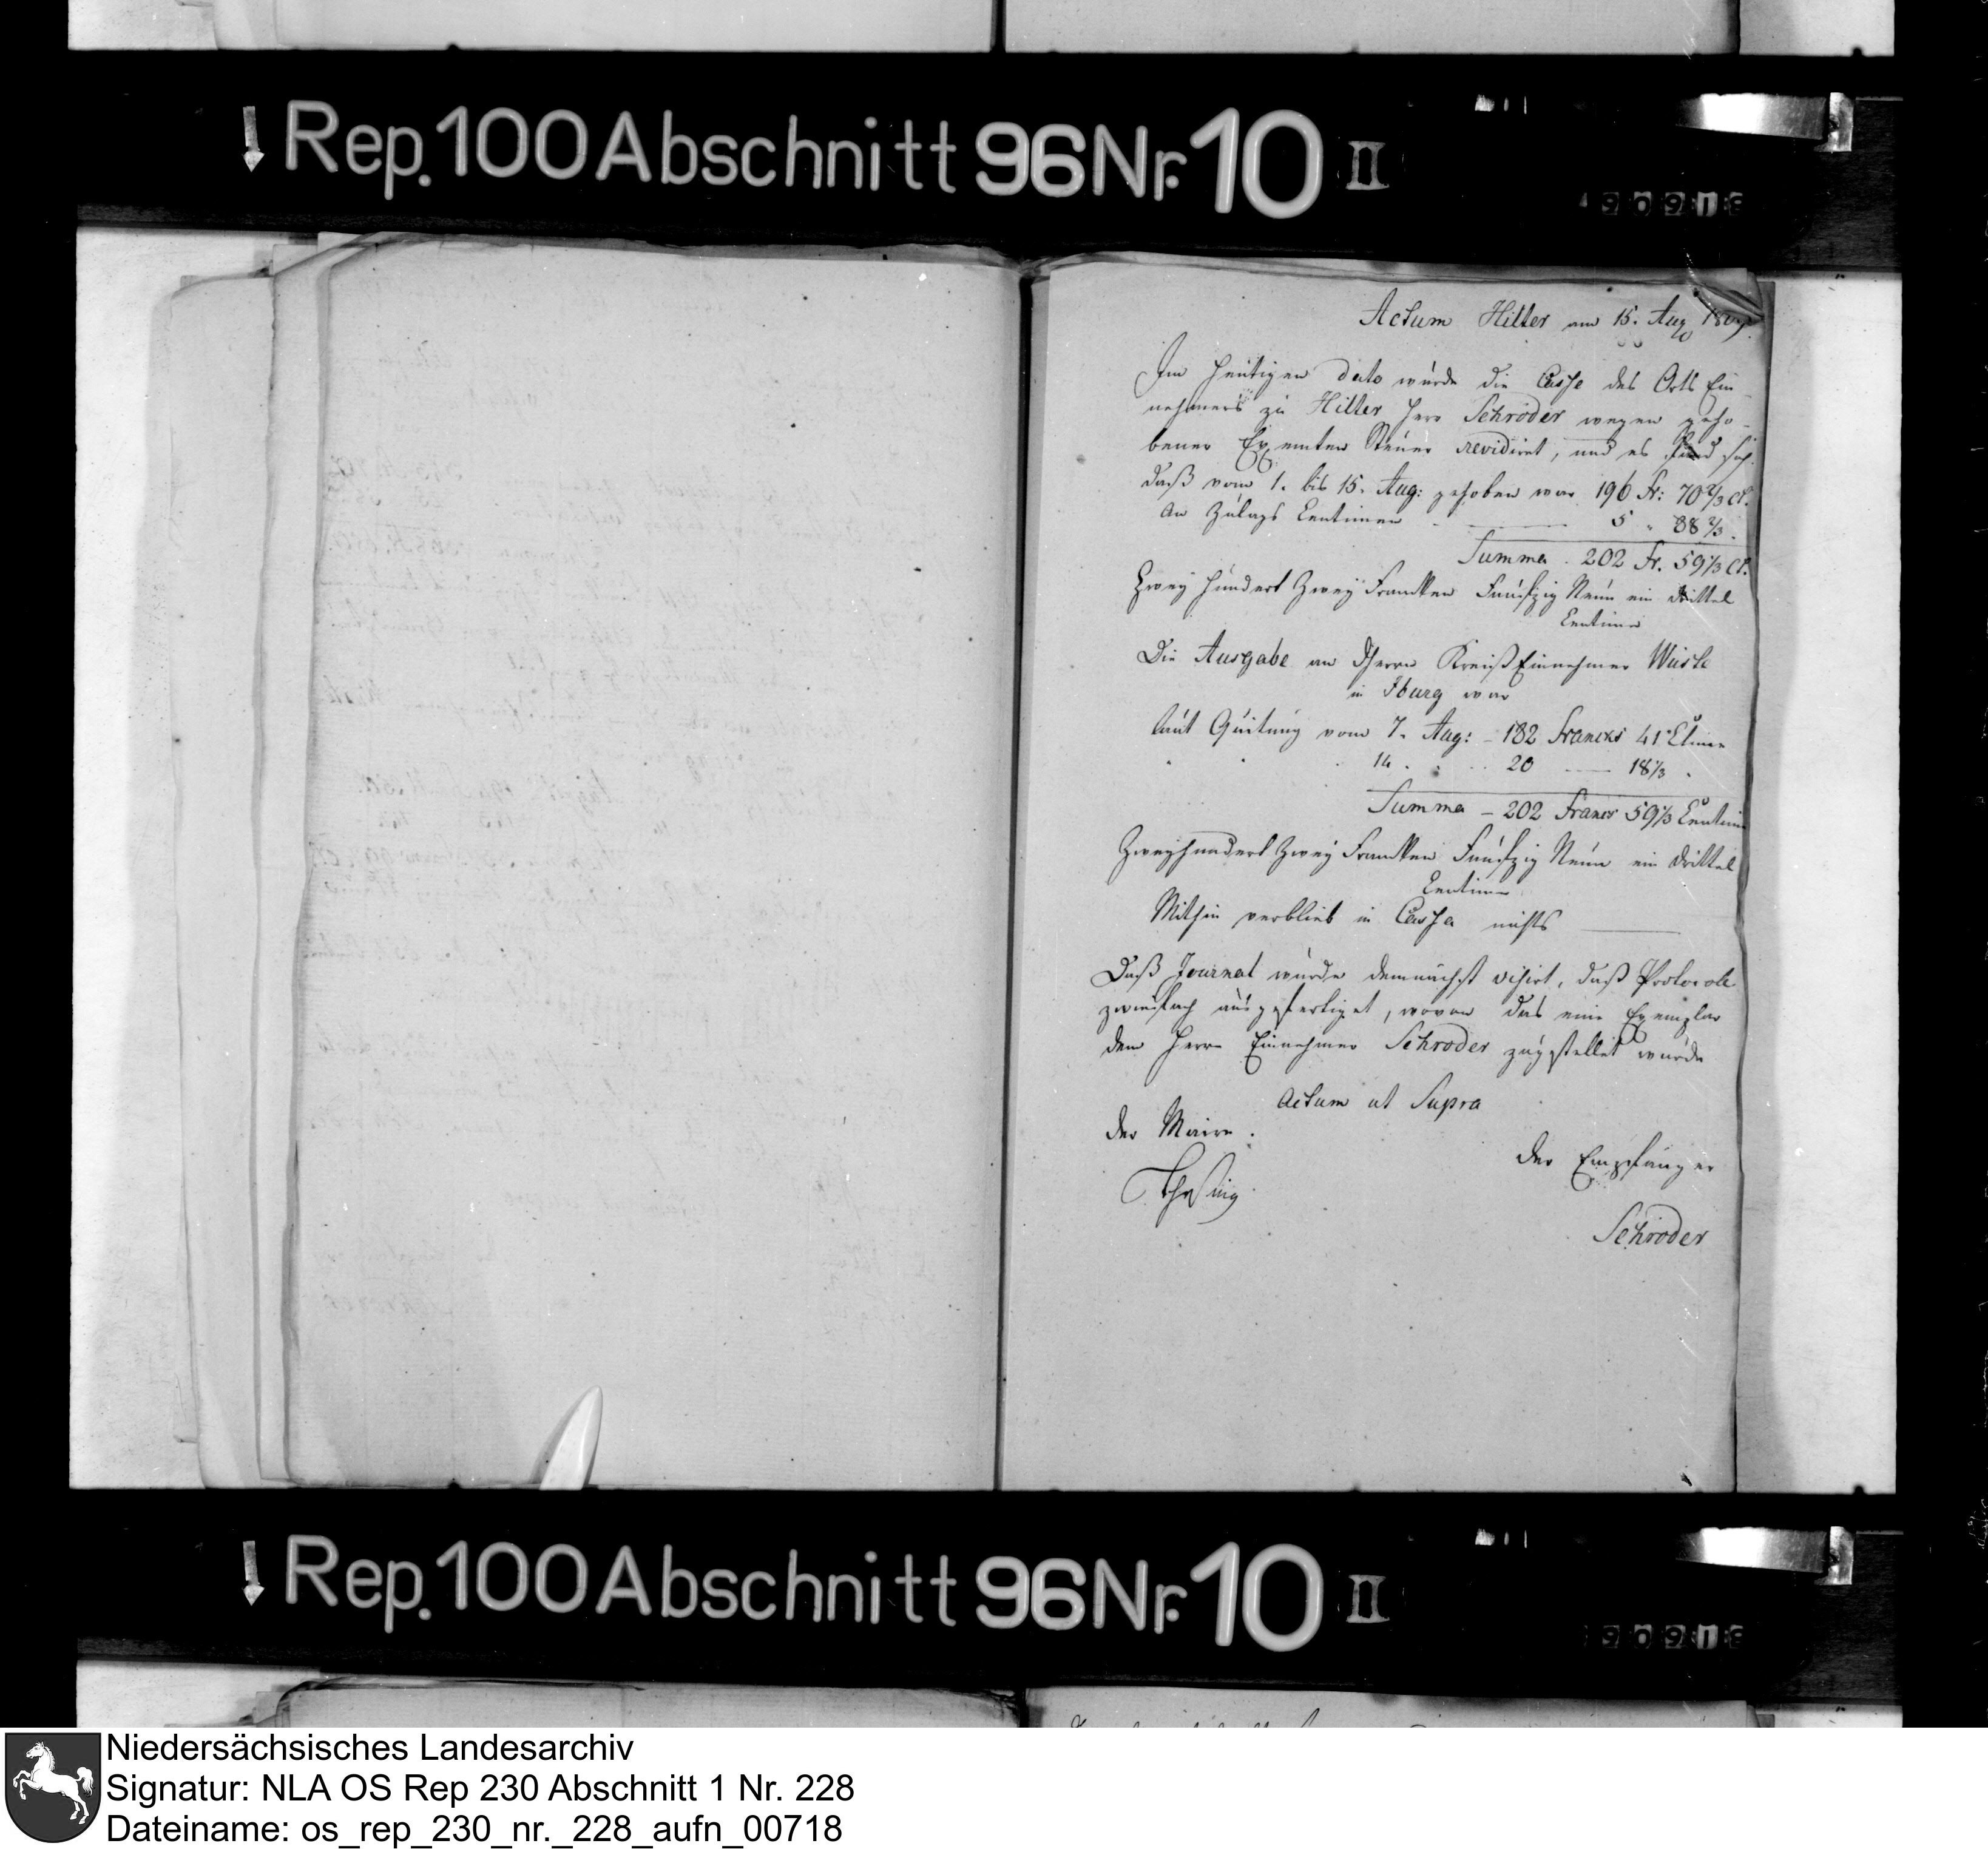 Rep. 100 Abschnitt 96 Nr. 10 II
90913
Actum Hilter am 15. Aug 1809.
Im heutigen dato wurde die Casse des Orts Ein-
nehmers zu Hilter Herr Schröder wegen geho-
bener Exemten Steuer revidiret, und es fand sich
daß vom 1. bis 15. Aug: gehoben war 196 fr: 70 2/3 Ct.
an Zulags Centimen - 5 " 88 2/3 .
Summa . 202 Fr. 59 1/3 Ct.
Zwey hundert Zwey Franken Fünfzig Neun ein drittel
Centimen
Die Ausgabe an Herrn Kreiß Einnehmer Wüste
in Iburg war
laut Quitung vom 7. Aug: - 182 Francs 41 Ctimen
14 . . 20 — 18 1/3 .
Summa - 202 Francs 59 1/3 Centim
Zweyhundert Zwey Franken Fünfzig Neun ein drittel
Centimen
Mithin verblieb in Cassa nichts —
Daß Journal wurde demnächst visirt, daß Protocoll
zweifach ausgefertiget, wovon das eine Exemplar
dem Herrn Einnehmer Schroder zugestellet wurde
Actum ut Supra
der Maire.
der Empfänger
Schröder
Rep. 100 Abschnitt 96 Nr. 10 II
90913
Niedersächsisches Landesarchiv
Signatur: NLA OS Rep 230 Abschnitt 1 Nr. 228
Dateiname: os_rep_230_nr._228_aufn_00718